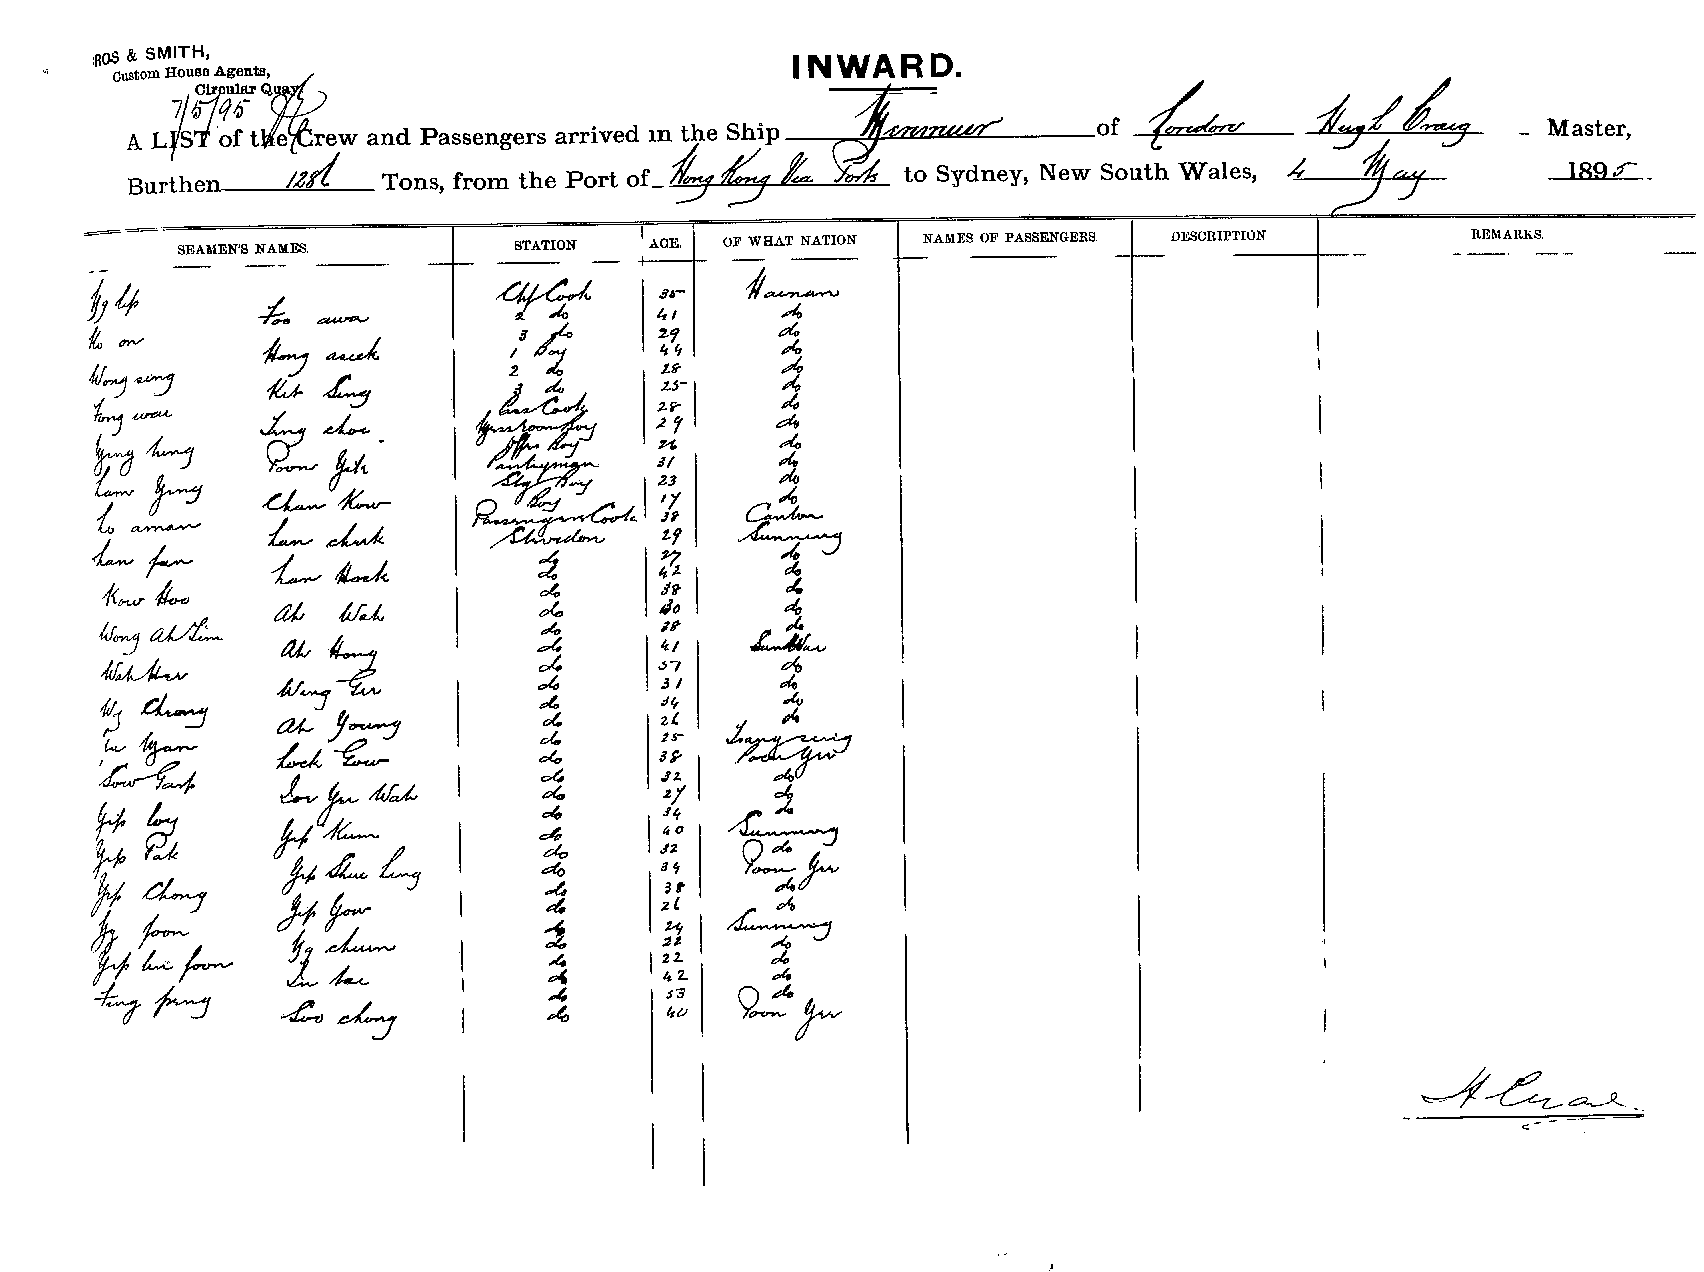 ROS & SMITH,
Custom House Agents,
Circular Quay
7/5/95
INWARD.
A LIST of the Crew and Passengers arrived in the Ship Menmuir of London Hugh Craig Master,
Burthen 1286 Tons, from the Port of Hong Kong Via Ports to Sydney, New South Wales, 4 May 1895
SEAMEN'S NAMES. STATION AGE. OF WHAT NATION NAMES OF PASSENGERS. DESCRIPTION REMARKS.
Ng Yip Chf Cook 35 Hainan
Foo awa 2 do 41 do
Ho on 3 do 29 do
Hong aseek 1 Boy 44 do
Wong sing 2 do 28 do
Kit Sing 3 do 25 do
Fong wai Cook 28 do
Ting choi Messroom Boy 29 do
Ying hing Offrs Boy 26 do
Poon Yik Pantryman 31 do
Lam Ying Stg Boy 23 do
Chan Kow Boy 17 do
Lo aman Passengers Cook 38 Canton
Lan chuk Stevedon 29 Sunning
Lan fan do 27 do
Lan Hock do 42 do
Kow Hoo do 38 do
Ah Wah do 30 do
Wong Ah Tim do 38 do
Ah Hong do 41 Sun Wai
Wah Her do 37 do
Wing Gee do 31 do
Ng Chong do 34 do
Ah Young do 26 do
Yan do 25 Tsang sing
Lock Gow do 38 Poon Yu
Sow Garp do 32 do
Yu Wah do 27 do
Yip Loy do 34 do
Yip Kum do 40 Sunning
Yip Pak do 32 do
Yip Shue Ling do 34 Poon Yu
Yip Chong do 38 do
Yip Gow do 26 do
Ng foon do 24 Sunning
Ng chun do 22 do
Yip lin foon do 22 do
Lu tai do 42 do
Fing peng do 53 do
Soo chong do 40 Poon Yu
H Craig.